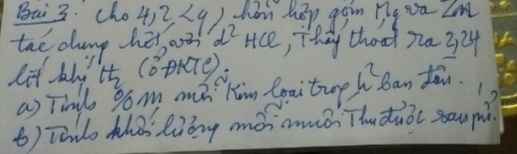 Bài 3. Cho 4,2 <g, hỗn hợp gồm Mg và Zn
tác dụng hết với d² HCl, Thấy thoát ra 2,24
lít khí H₂ (ở ĐKTC).
a) Tính % m mỗi kim loại trog h² ban đầu.
b) Tính khối lượng mỗi muối Thu được sau pứ.